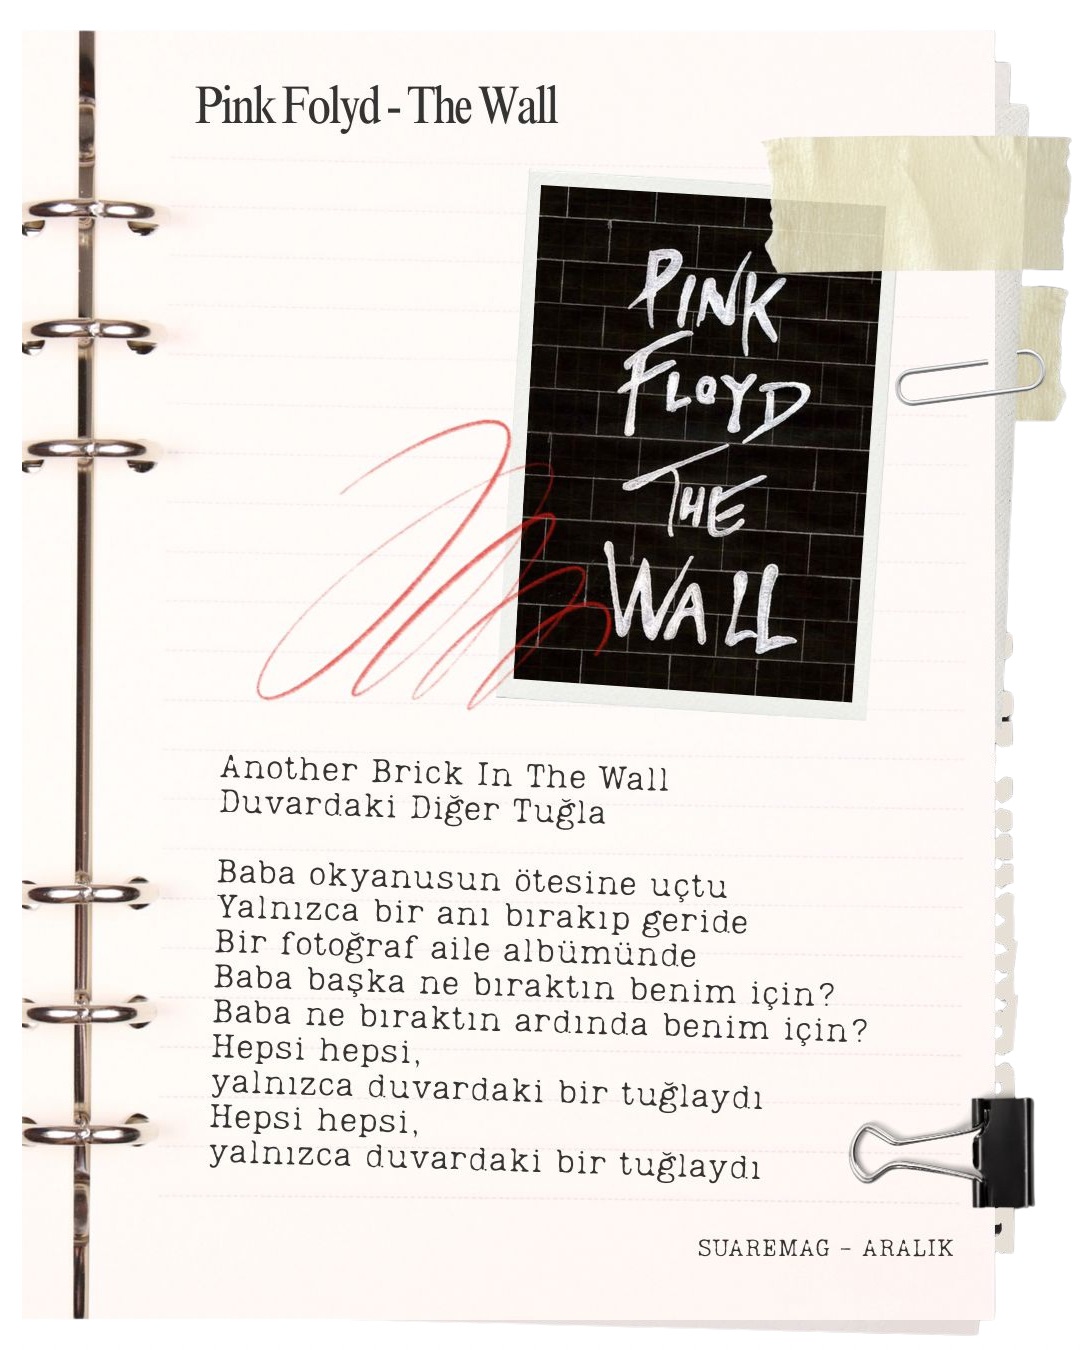 Pink Folyd - The Wall
PINK
FLOYD
THE
WALL
Another Brick In The Wall
Duvardaki Diğer Tuğla
Baba okyanusun ötesine uçtu
Yalnızca bir anı bırakıp geride
Bir fotoğraf aile albümünde
Baba başka ne bıraktın benim için?
Baba ne bıraktın ardında benim için?
Hepsi hepsi,
yalnızca duvardaki bir tuğlaydı
Hepsi hepsi,
yalnızca duvardaki bir tuğlaydı
SUAREMAG - ARALIK